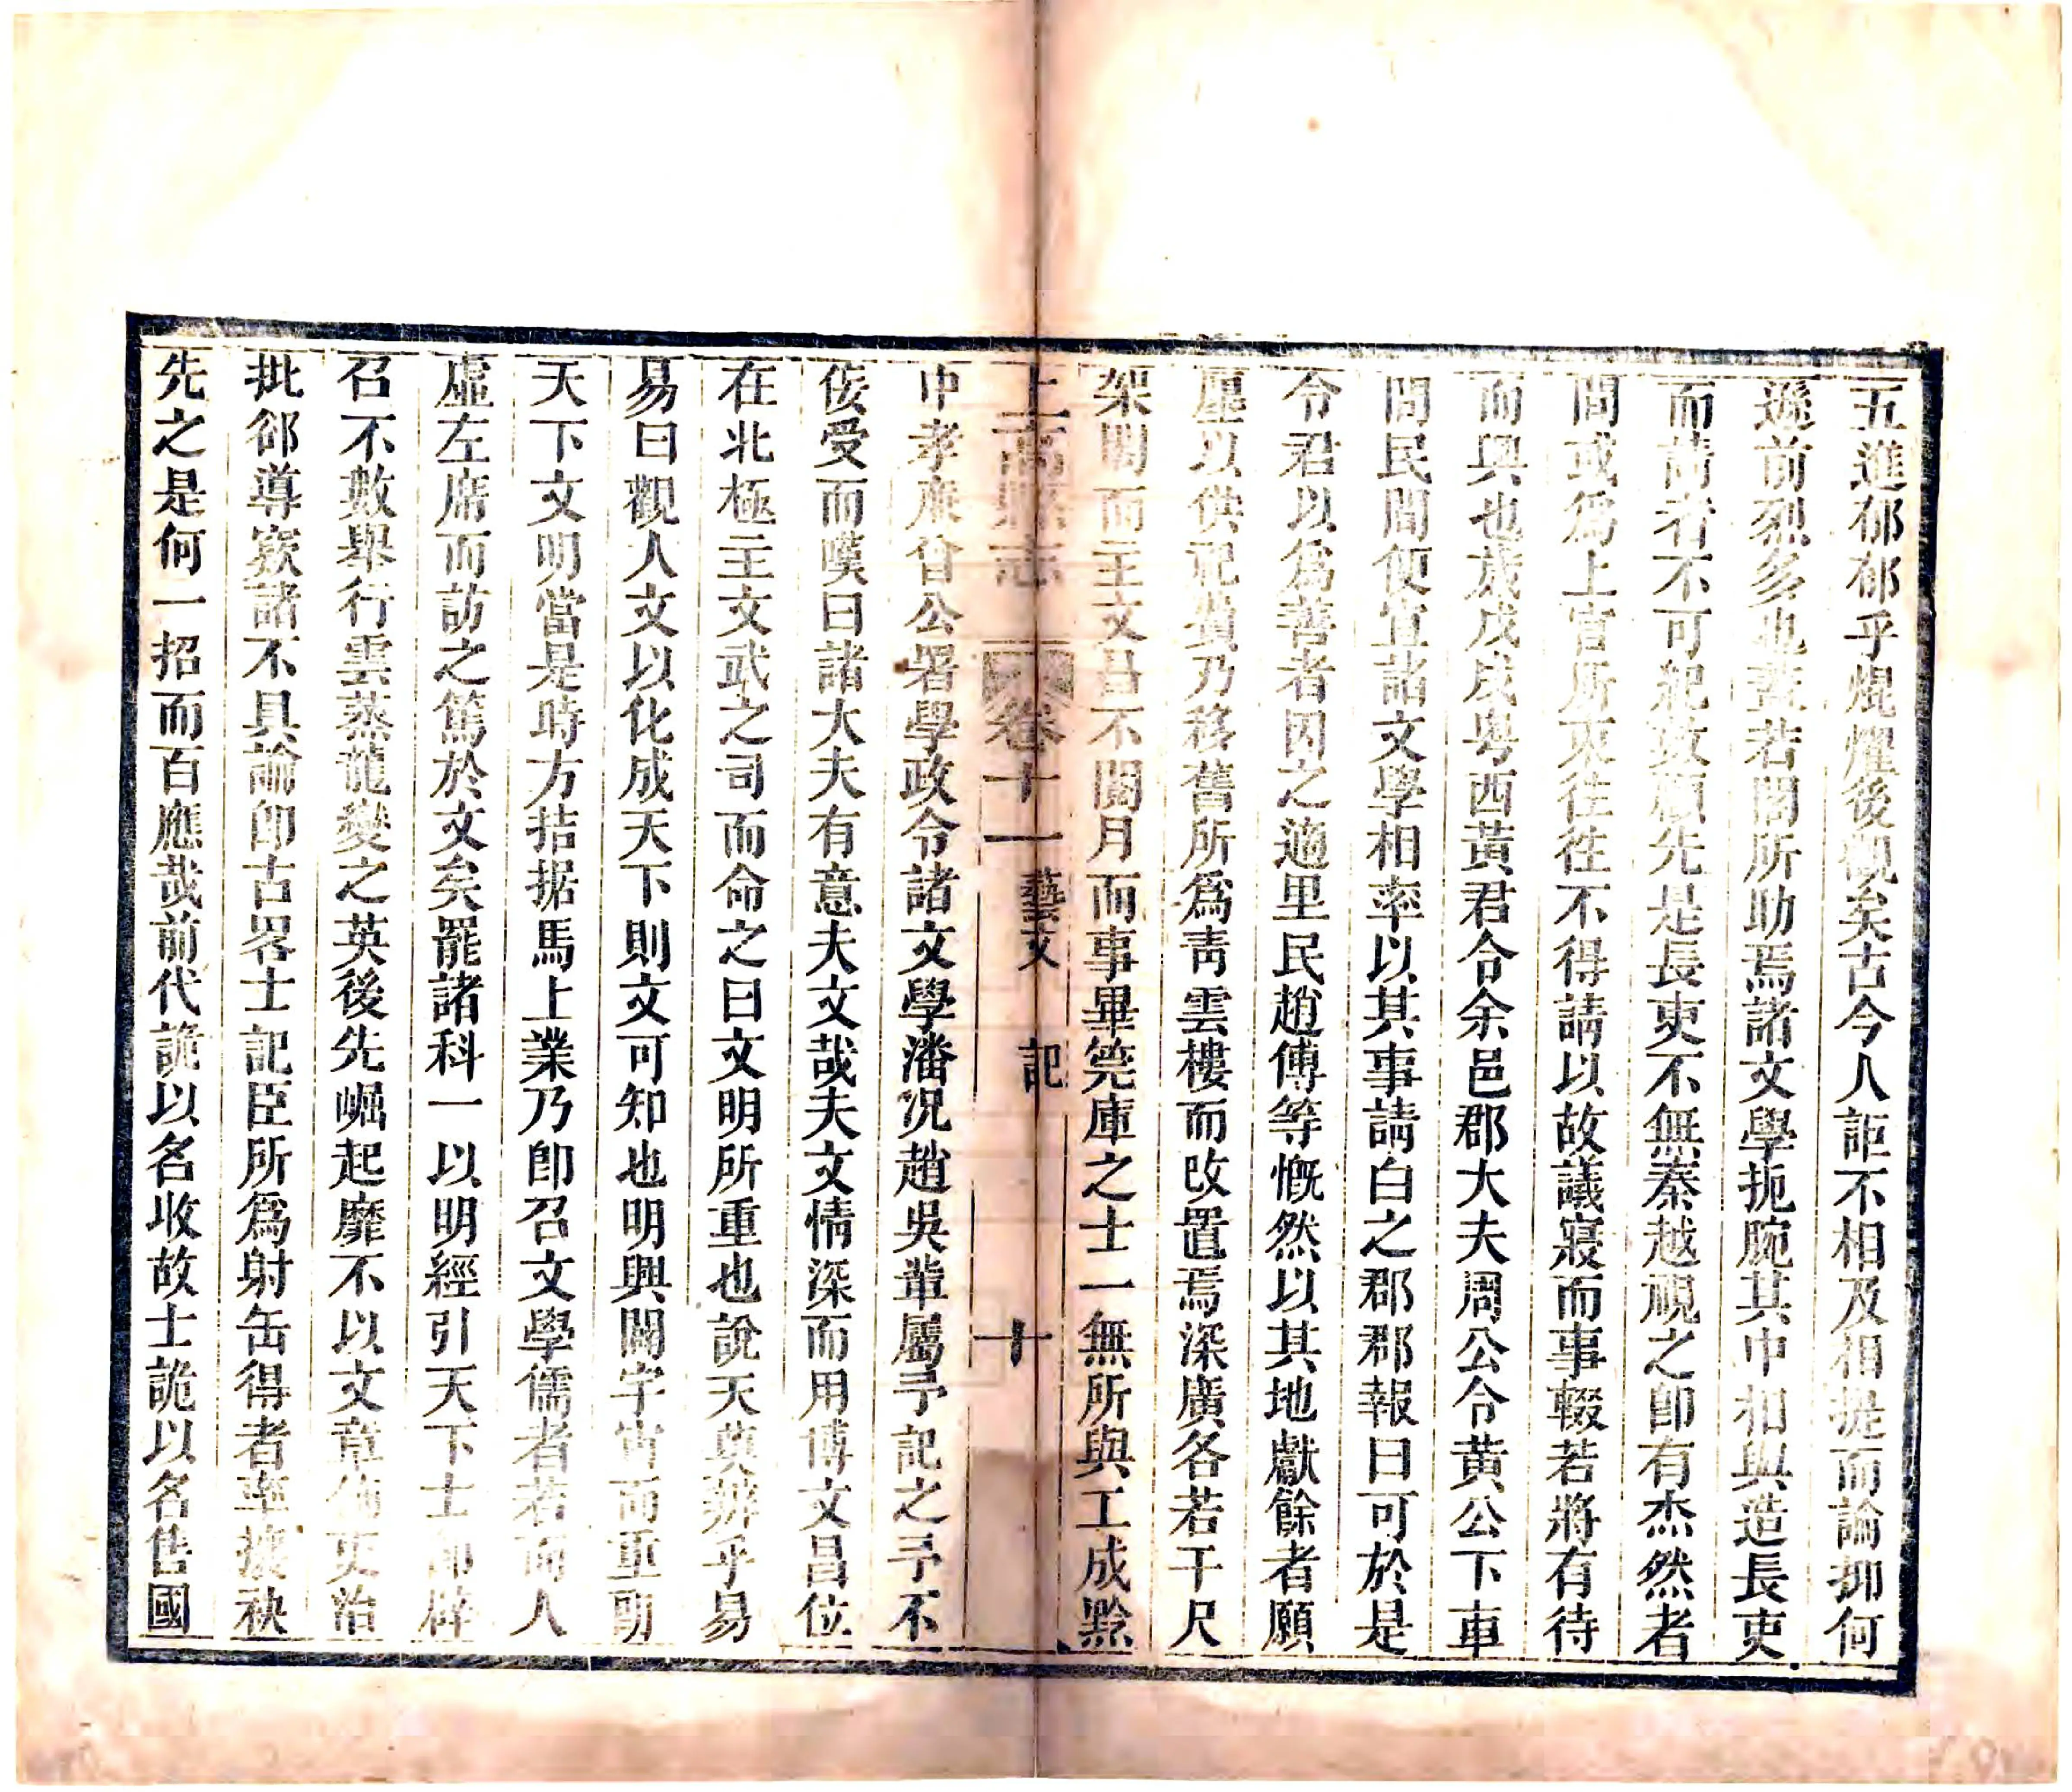 五進郁郁乎焜燿後觀矣古今人詎不相及相提而論抑何
遜前烈多也蓋若閣所助焉諸文學扼腕其中相與造長吏
而請者不可紀故願先是長吏不無秦越視之卽有杰然者
間或爲上官所東徃徃不得請以故議寢而事輟若將有待
而興也歲戊戌粤西黃君令余邑郡大夫周公令黃公下車
問民間便宜諸文學相率以其事請白之郡郡報曰可於是
令君以爲善者因之適里民趙傅等慨然以其地獻餘者願
廛以供祀費乃移舊所爲靑雲樓而改置焉深廣各若干尺
架閣而主文昌不閱月而事畢筦庫之士一無所與工成黔
上高縣志 卷十一 藝文 記 十
中孝廉曾公署學政令諸文學潘况趙吳輩屬予記之予不
佞受而嘆曰諸大夫有意夫文哉夫文情深而用博文昌位
在北極主文武之司而命之曰文明所重也說天莫辨乎易
易曰觀人文以化成天下則文可知也明興闢宇宙而重朙
天下文明當是時方拮据馬上業乃卽召文學儒者若而人
虛左席而訪之篤於文矣罷諸科一以明經引天下士卽辟
召不數舉行雲蒸龍變之英後先崛起靡不以文章飾吏治
批郤導窾諸不具論卽古畧士記臣所爲射缶得者率攘袂
先之是何一招而百應哉前代詭以名收故士詭以名售國